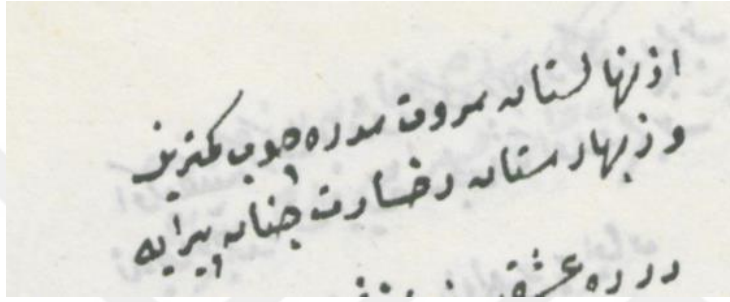 از نهالستان سروت سدره چوب کمترین
وز بهارستان رخسارت جنان پیرایه
در ره عشق